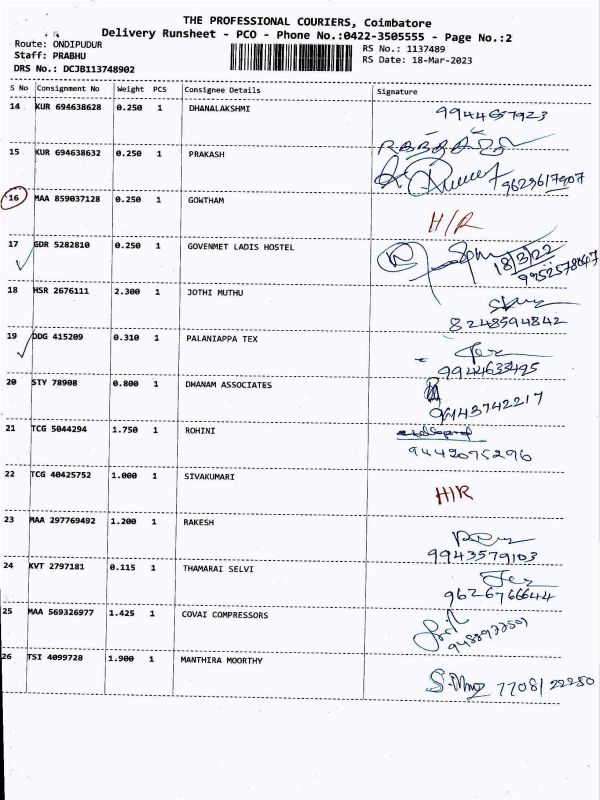 THE PROFESSIONAL COURIERS, Coimbatore
Delivery Runsheet - PCO - Phone No.:0422-3505555 - Page No.:2
Route: ONDIPUDUR
Staff: PRABHU
DRS No.: DCJB113748902
RS No.: 1137489
RS Date: 18-Mar-2023
S No Consignment No Weight PCS Consignee Details Signature
14 KUR 694638628 0.250 1 DHANALAKSHMI 9944657923
15 KUR 694638632 0.250 1 PRAKASH 9629617907
16 MAA 859037128 0.250 1 GOWTHAM H/R
17 GDR 5282810 0.250 1 GOVENMET LADIS HOSTEL 18/3/22
18 HSR 2676111 2.300 1 JOTHI MUTHU 8248594842
19 DDG 415209 0.310 1 PALANIAPPA TEX 9944633495
20 STY 78908 0.800 1 DHANAM ASSOCIATES 9443742217
21 TCG 5044294 1.750 1 ROHINI 9442075296
22 TCG 40425752 1.000 1 SIVAKUMARI H/R
23 MAA 297769492 1.200 1 RAKESH 9943579103
24 KVT 2797181 0.115 1 THAMARAI SELVI 9626766644
25 MAA 569326977 1.425 1 COVAI COMPRESSORS
26 TSI 4099728 1.900 1 MANTHIRA MOORTHY